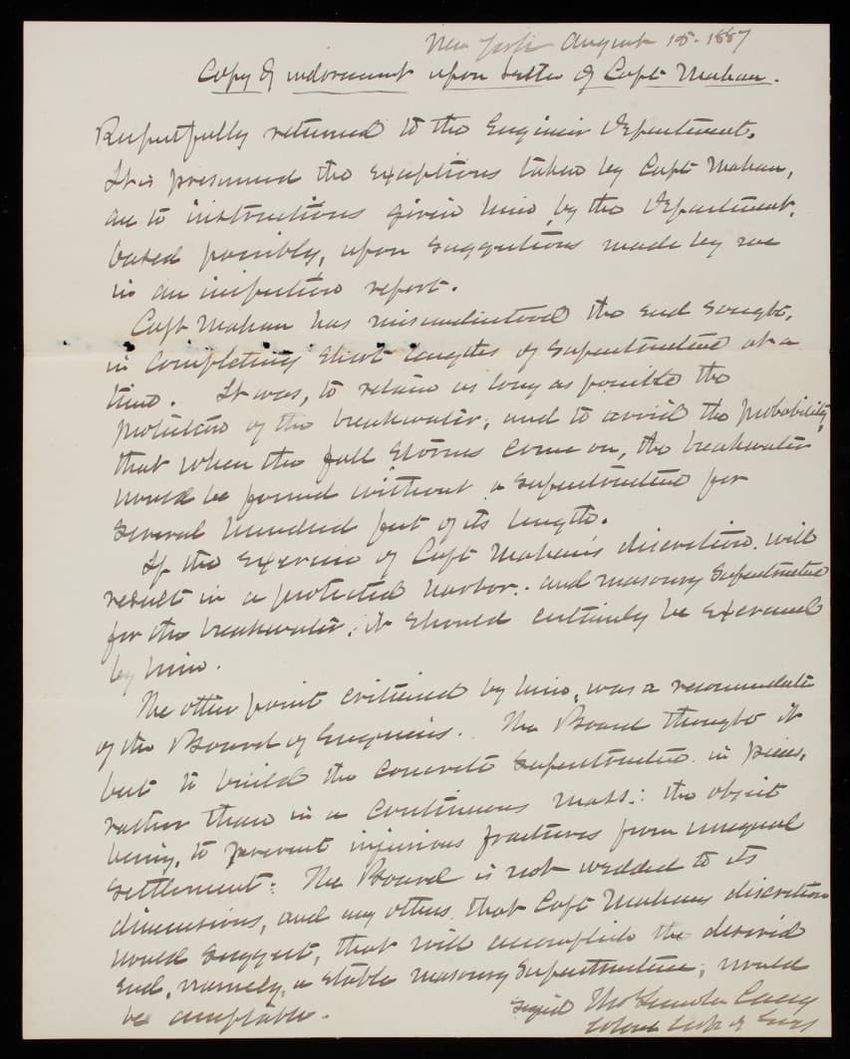 New York August 18. 1887
Copy of indorsement upon letter of Capt Mahan.
Respectfully returned to the Engineer Department.
It is presumed the exceptions taken by Capt Mahan,
are to instructions given him, by the Department,
based possibly, upon suggestions made by me
in an inspection report.
Capt Mahan has misunderstood the end sought,
in completing short lengths of superstructure at a
time. It was, to retain as long as possible the
protection of the breakwater, and to avoid the probability,
that when the fall storms come on, the breakwater
would be found without a superstructure for
several hundred feet of its length.
If the exercise of Capt Mahan's discretion, will
result in a protected harbor, and masonry superstructure
for the breakwater, it should certainly be exercised
by him.
The other point criticised by him, was a recommendation
of the Board of Engineers. The Board thought it
best to build the concrete superstructure in pieces,
rather than in a continuous mass: the object
being, to prevent injurious fractures from unequal
settlement: The Board is not wedded to its
dimensions, and any others that Capt Mahans discretion
would suggest, that will accomplish the desired
end, namely, a stable masonry superstructure, would
be acceptable.
signed Thos Lincoln Casey
Colonel Corps of Engrs